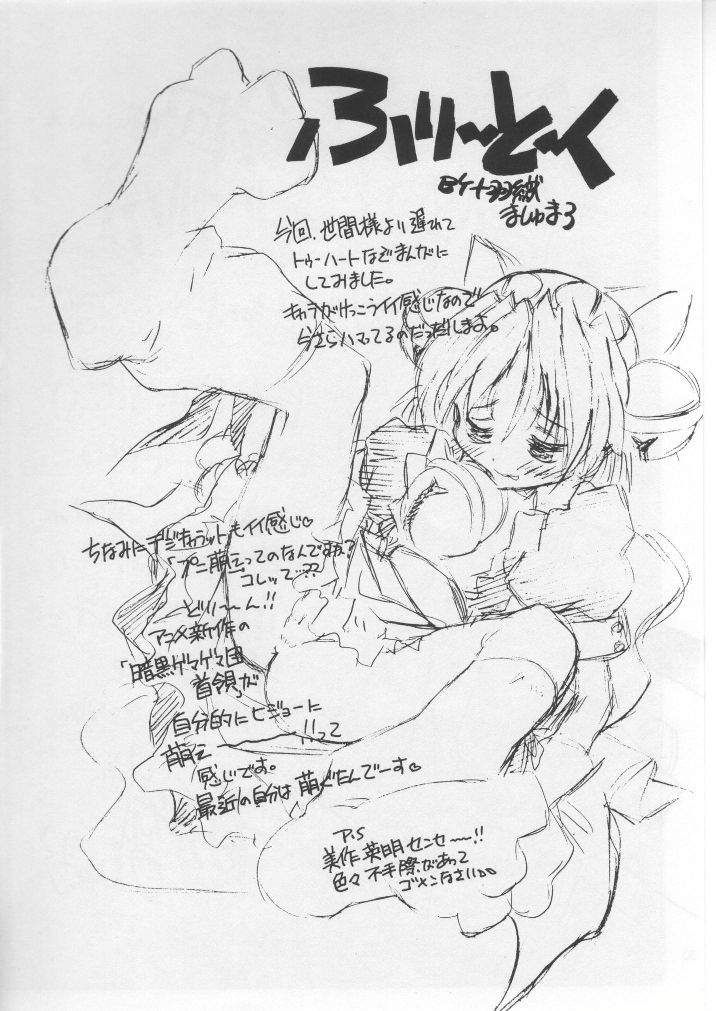 ふりーとーく
ましゅまろ
今回、世間様より遅れて
トゥハートなどまんがに
してみました。
キャラがけっこうイイ感じなので
今さらハマってるのだっだしまよ。
ちなみにデジキャラットもイイ感じ♡
「プニ萌えってのなんですか?
コレッて…??
どりーーん!!
アニメ新作の
「暗黒ゲマゲマ団
首領」が
自分的にヒジョーに
萌えーーー!!って
感じです。
最近の自分は萌ぐたんでーす♡
P.S
美作英明センセーー!!
色々不手際があって
ゴメンなさい